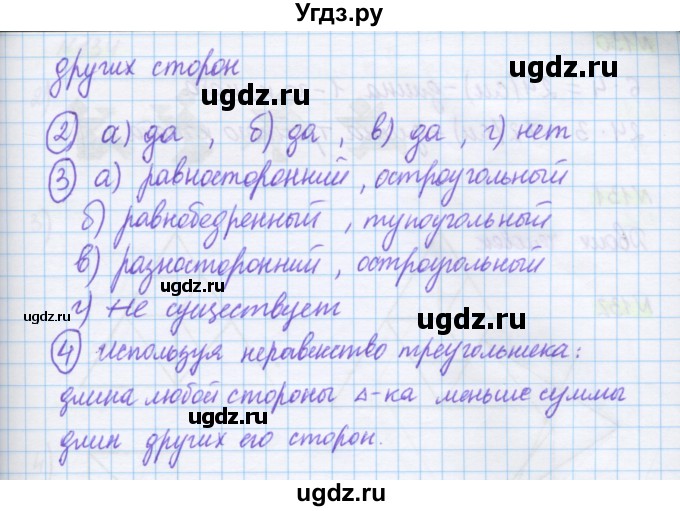 Угдз.ру
других сторон
ugdz.ru
ugdz.ru
② а) да , б) да , в) да , г) нет
③ а) равносторонний , остроугольный
ugdz.ru
б) равнобедренный , тупоугольный
в) разносторонний , остроугольный
ugdz.ru
ugdz.ru
ugdz.ru
г) Не существует
④ Используя неравенство треугольника:
длина любой стороны Δ-ка меньше суммы
ugdz.ru
длин других его сторон.
ugdz.ru